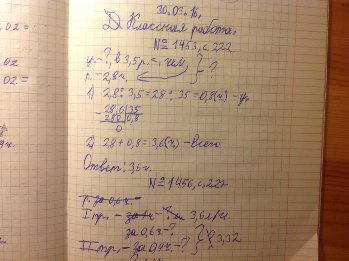 02 =
30.03.16.
Классная работа.
№ 1453, с. 222
у. - ?, в 3,5 р. <, чем
п. - 2,8 ч.
} - ?
1) 2,8 : 3,5 = 28 : 35 = 0,8 (ч) - у.
28,0 | 35
280 | 0,8
0
2) 2,8 + 0,8 = 3,6 (ч) - всего
Ответ: 3,6 ч.
№ 1456, с. 222
I тр. - 3,6 л/ч.
за 0,6 ч. - ?
II тр. - за 0,4 ч. - ? } 3,32